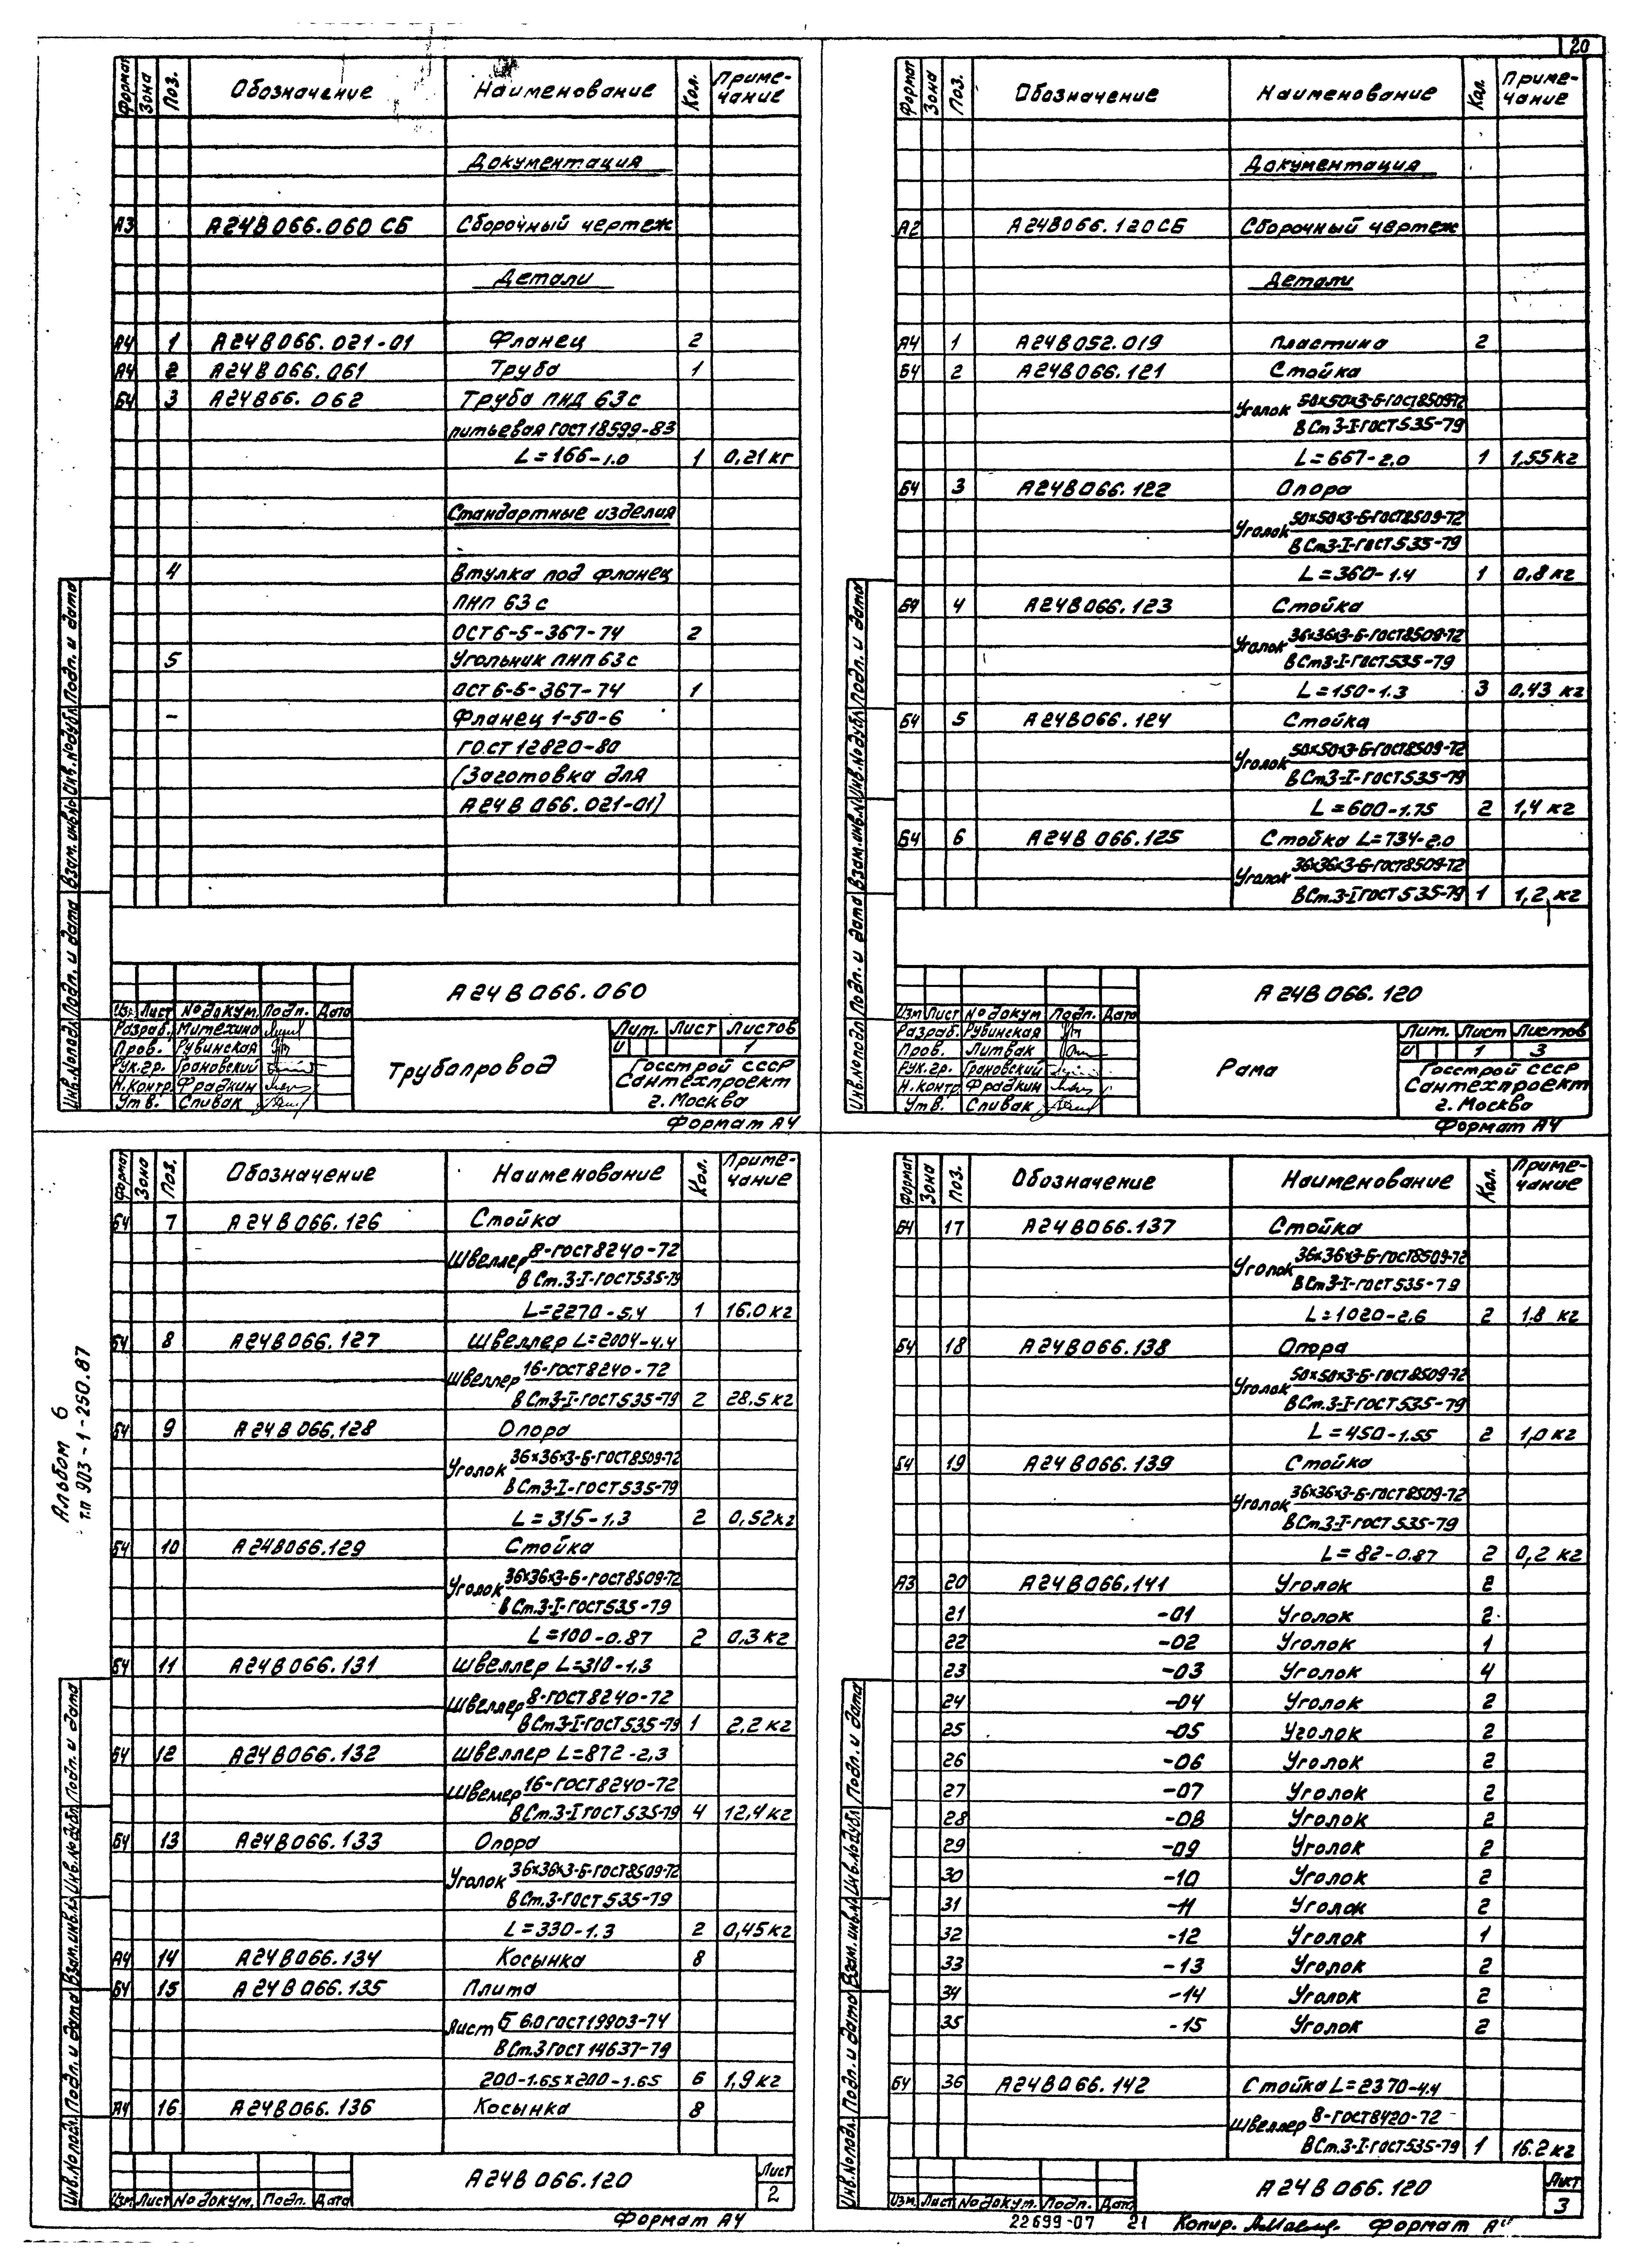 20
Формат Зона Поз. Обозначение Наименование Кол. Приме-чание
Документация
А3 А24В066.060 СБ Сборочный чертеж
Детали
А4 1 А24В066.021-01 Фланец 2
А4 2 А24В066.061 Труба 1
Б4 3 А24В66.062 Труба ПНД 63с
питьевая ГОСТ 18599-83
L=166-1.0 1 0,21 кг
Стандартные изделия
4 Втулка под фланец
ПНП 63с
ОСТ 6-5-367-74 2
5 Угольник ПНП 63с
ОСТ 6-5-367-74 1
- Фланец 1-50-6
ГОСТ 12820-80
(Заготовка для
А24В066.021-01)
Инв.№подл. Подп. и дата Взам.инв.№ Инв.№дубл. Подп. и дата
А24В066.060
Изм. Лист №докум. Подп. Дата
Разраб. Митехина
Пров. Рубинская
Рук.гр. Грановский
Н.контр. Фрадкин
Утв. Спивак
Трубопровод
Лит. Лист Листов
И 1
Госстрой СССР
Сантехпроект
г. Москва
Формат А4
Формат Зона Поз. Обозначение Наименование Кол. Приме-чание
Документация
А2 А24В066.120СБ Сборочный чертеж
Детали
А4 1 А24В052.019 Пластина 2
Б4 2 А24В066.121 Стойка
Уголок 50×50×3-Б-ГОСТ8509-72
ВСт3-I-ГОСТ535-79
L=667-2.0 1 1,55 кг
Б4 3 А24В066.122 Опора
Уголок 50×50×3-Б-ГОСТ8509-72
ВСт3-I-ГОСТ535-79
L=360-1.4 1 0,8 кг
Б4 4 А24В066.123 Стойка
Уголок 36×36×3-Б-ГОСТ8509-72
ВСт3-I-ГОСТ535-79
L=150-1.3 3 0,43 кг
Б4 5 А24В066.124 Стойка
Уголок 50×50×3-Б-ГОСТ8509-72
ВСт3-I-ГОСТ535-79
L=600-1.75 2 1,4 кг
Б4 6 А24В066.125 Стойка L=734-2.0
Уголок 36×36×3-Б-ГОСТ8509-72
ВСт.3-IГОСТ535-79 1 1,2 кг
Инв.№подл. Подп. и дата Взам.инв.№ Инв.№дубл. Подп. и дата
А24В066.120
Изм Лист №докум Подп. Дата
Разраб. Рубинская
Пров. Литвак
Рук.гр. Грановский
Н.контр Фрадкин
Утв. Спивак
Рама
Лит. Лист Листов
И 1 3
Госстрой СССР
Сантехпроект
г. Москва
Формат А4
Альбом 6
т.п 903-1-250.87
Формат Зона Поз. Обозначение Наименование Кол. Приме-чание
Б4 7 А24В066.126 Стойка
Швеллер 8-ГОСТ8240-72
ВСт.3-I-ГОСТ535-79
L=2270-5.4 1 16.0 кг
Б4 8 А24В066.127 Швеллер L=2004-4.4
Швеллер 16-ГОСТ8240-72
ВСт3-I-ГОСТ535-79 2 28,5 кг
Б4 9 А24В066.128 Опора
Уголок 36×36×3-Б-ГОСТ8509-72
ВСт3-I-ГОСТ535-79
L=315-1.3 2 0,52кг
Б4 10 А24В066.129 Стойка
Уголок 36×36×3-Б-ГОСТ8509-72
ВСт.3-I-ГОСТ535-79
L=100-0.87 2 0,3 кг
Б4 11 А24В066.131 Швеллер L=310-1.3
Швеллер 8-ГОСТ8240-72
ВСт.3-I-ГОСТ535-79 1 2,2 кг
Б4 12 А24В066.132 Швеллер L=872-2,3
Швеллер 16-ГОСТ8240-72
ВСт.3-IГОСТ535-79 4 12,4 кг
Б4 13 А24В066.133 Опора
Уголок 36×36×3-Б-ГОСТ8509-72
ВСт.3-ГОСТ535-79
L=330-1.3 2 0,45 кг
А4 14 А24В066.134 Косынка 8
Б4 15 А24В066.135 Плита
Лист Б 6.0 ГОСТ19903-74
ВСт.3ГОСТ 14637-79
200-1.65×200-1.65 6 1,9 кг
А4 16 А24В066.136 Косынка 8
Инв.№подл. Подп. и дата Взам.инв.№ Инв.№дубл. Подп. и дата
Изм Лист №докум. Подп. Дата
А24В066.120
Лист
2
Формат А4
Формат Зона Поз. Обозначение Наименование Кол. Приме-чание
Б4 17 А24В066.137 Стойка
Уголок 36×36×3-Б-ГОСТ8509-72
ВСт3-I-ГОСТ535-79
L=1020-2,6 2 1,8 кг
Б4 18 А24В066.138 Опора
Уголок 50×50×3-Б-ГОСТ8509-72
ВСт.3-I-ГОСТ535-79
L=450-1.55 2 1,0 кг
Б4 19 А24В066.139 Стойка
Уголок 36×36×3-Б-ГОСТ8509-72
ВСт.3-I-ГОСТ535-79
L=82-0.87 2 0,2 кг
А3 20 А24В066.141 Уголок 2
21 -01 Уголок 2
22 -02 Уголок 1
23 -03 Уголок 4
24 -04 Уголок 2
25 -05 Уголок 2
26 -06 Уголок 2
27 -07 Уголок 2
28 -08 Уголок 2
29 -09 Уголок 2
30 -10 Уголок 2
31 -11 Уголок 2
32 -12 Уголок 1
33 -13 Уголок 2
34 -14 Уголок 2
35 -15 Уголок 2
Б4 36 А24В066.142 Стойка L=2370-4.4
Швеллер 8-ГОСТ8420-72
ВСт.3-I-ГОСТ535-79 1 16.2 кг
Инв.№подл. Подп. и дата Взам.инв.№ Инв.№дубл. Подп. и дата
Изм. Лист №докум. Подп. Дата
А24В066.120
Лист
3
22699-07 21 Копир. Формат А4